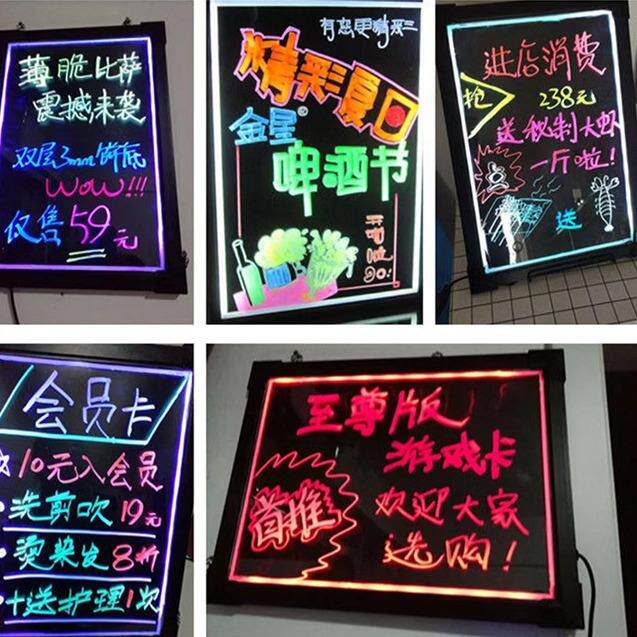 薄脆比萨
震撼来袭
双层3mm饼底
WOW!!!
仅售59元
有您更精彩
精彩夏日
金星®
啤酒节
开喝啦
进店消费
抢
238元
送秘制大虾
一斤啦!
送
会员卡
10元入会员
洗剪吹19元
烫染发8折
+送护理1次
至尊版
游戏卡
首推
欢迎大家
选购!